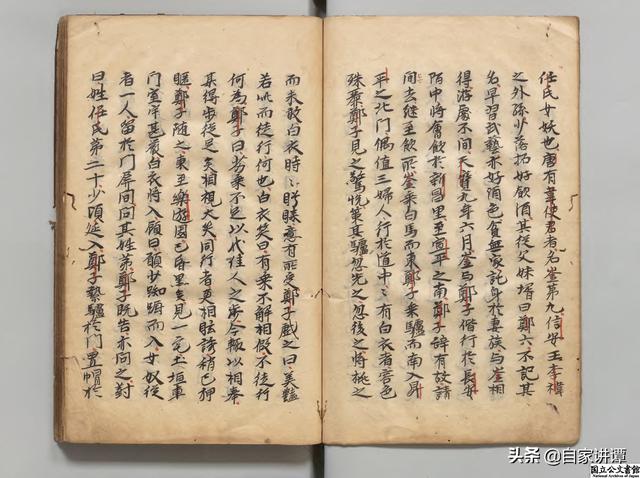 任氏女妖也唐有韋使君者名崟第九信安王李禕
之外孫少落拓好飲酒其從父妹壻曰鄭六不記其
名早習武藝亦好酒色貧無家託身於妻族与崟相
得游處不間天寶九年六月崟与鄭子偕行於長安
陌中將會飲於新昌里至宣平之南鄭子辞有故請
間去継至飲所崟乗白馬而東鄭子乗驢而南入昇
平之北門偶值三婦人行於道中〻有白衣者容色
殊麗鄭子見之驚悦策其驢忽先之忽後之將挑之
而未敢白衣時〻盻睐意有所受鄭子戲之曰美豔
若此而徒行何也白衣笑曰有乗不解相假不徒行
何為鄭子曰劣乗不足以代佳人之步今輒以相奉
某得步從足矣相視大笑同行者更相眩誘稍已狎
暱鄭子随之東至樂遊園已昏黒矣見一宅土垣車
門室宇甚嚴白衣將入顧曰願少踟蹰而入女奴從
者一人留於門屏間問其姓第鄭子既告亦問之對
曰姓任氏第二十少頃延入鄭子縶驢於門置帽於
头条 @自家讲谭
国立公文書館
National Archives of Japan